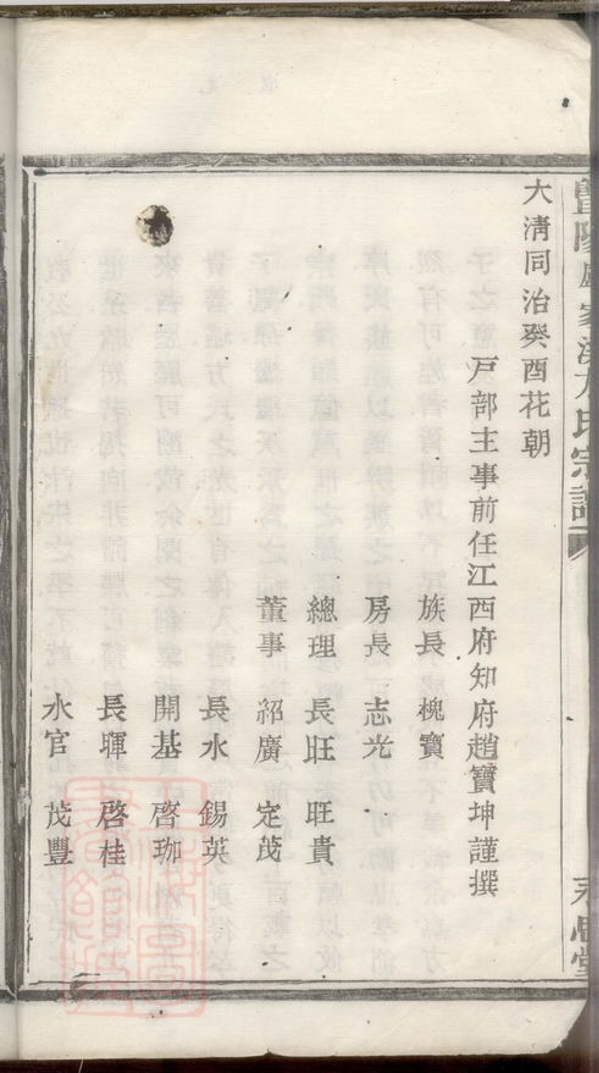 大清同治癸酉花朝
戸部主事前任江西府知府趙寶坤謹撰
族長 槐寶
房長 志光
總理 長旺 旺貴
董事 紹廣 定茂
長水 錫英
開基 啓珈
長暉 啓桂
水官 茂豐
家 氏宗譜
永思堂